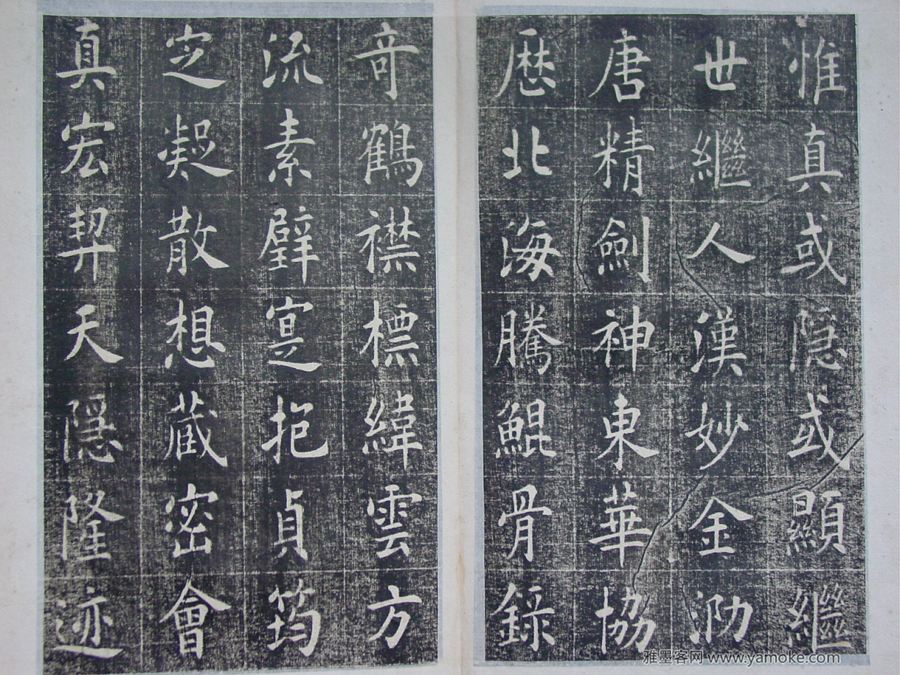 惟真或隐或顯繼
世繼人漢妙金泐
唐精劍神東華協
歷北海騰鯤骨錄
奇鶴襟標緯雲方
流素壁寔抱貞筠
㝎凝散想蔵密會
真宏契天隱隆迹
雅墨客网 www.yamoke.com